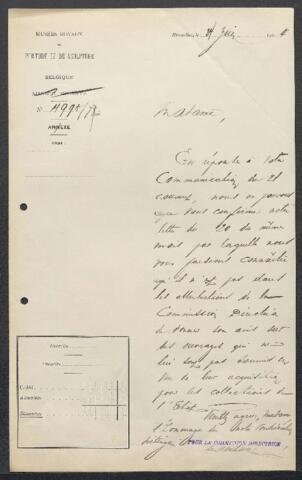 MUSÉES ROYAUX
DE
PEINTURE ET DE SCULPTURE
BELGIQUE
N°
ANNEXE
Bruxelles, le Juin
Madame,
En réponse à votre
Communication du 21
courant, nous ne pouvons
que vous confirmer notre
lettre du 20 du même
mois par laquelle nous
vous faisions connaître
qu'il n'est pas dans
les attributions de la
Commission Directrice
de donner son avis sur
des ouvrages qui ne
lui sont pas soumis en
vue de leur acquisition
pour les collections de
l'Etat. Veuillez agréer, Madame
l'hommage de
POUR LA COMMISSION DIRECTRICE